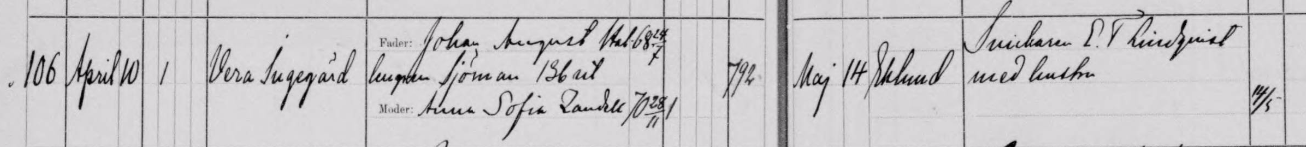 106 April 10 1 Vera Ingegärd
Fader: Johan August 68 24/7
Sjöman 136
Moder: Anna Sofia Zandell 70 28/11 1
792
Maj 14 Eklund
Snickaren E. T. Lindqvist
med hustru
14/5